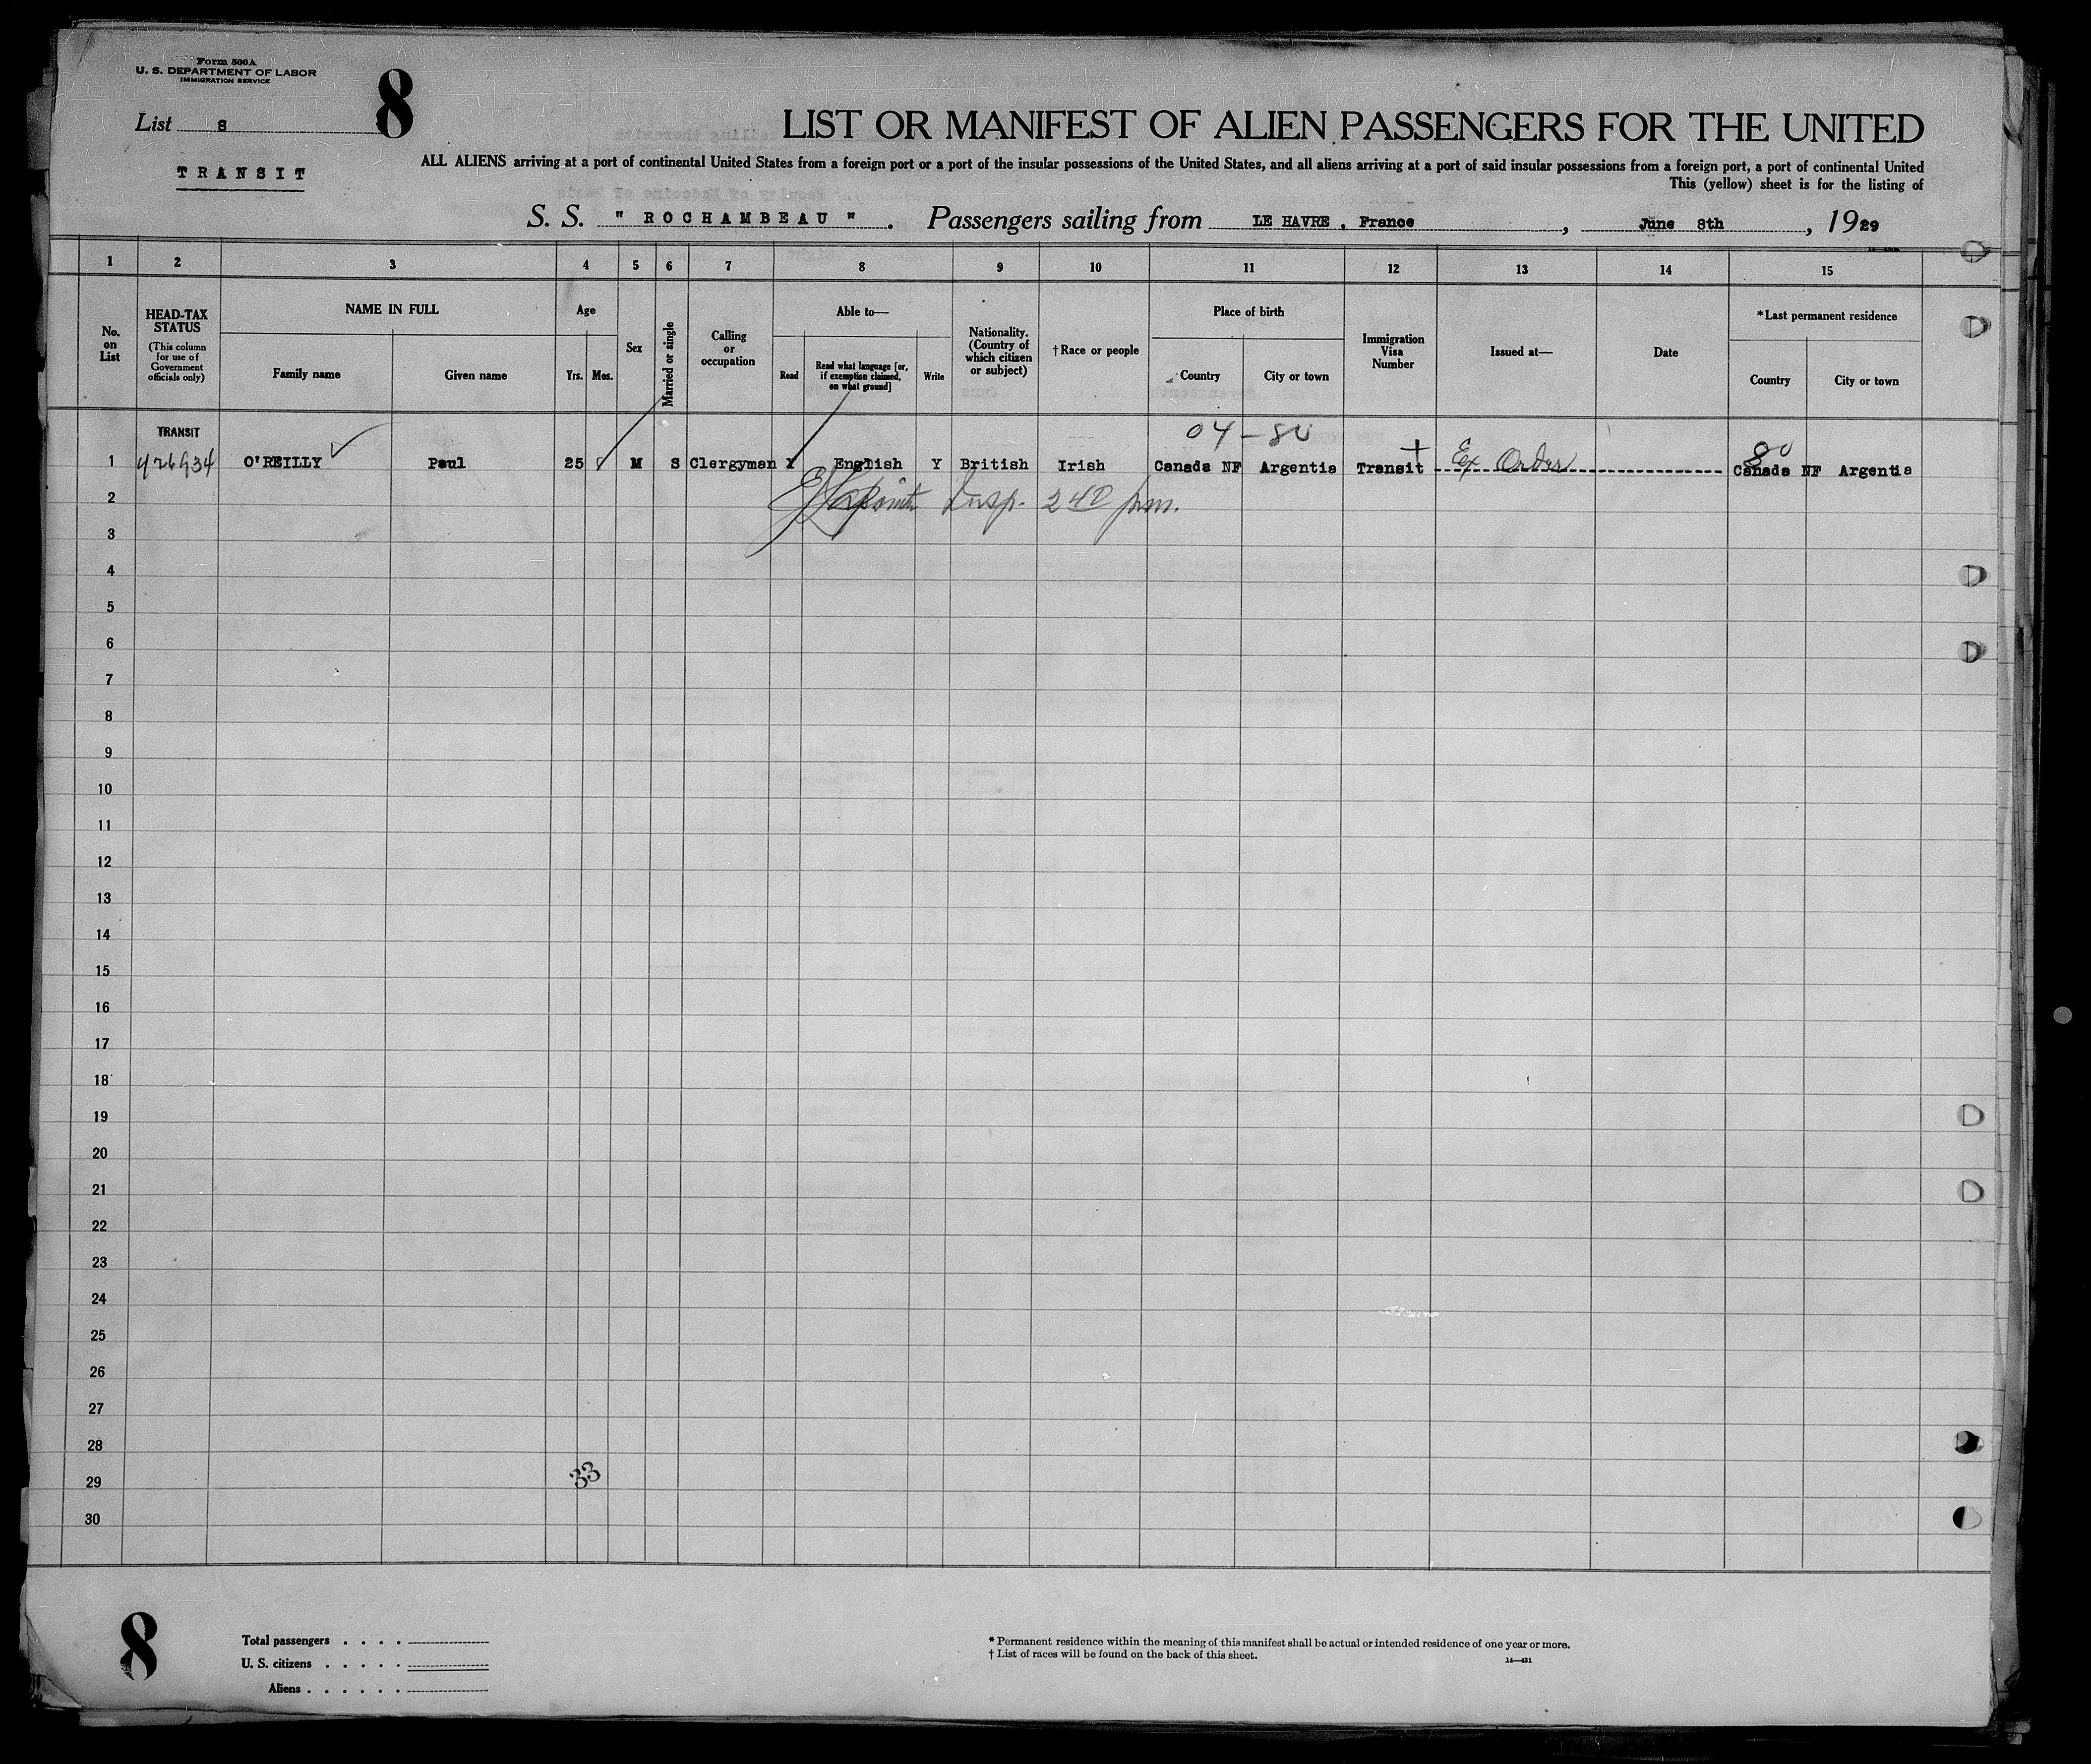 Form 500A
U. S. DEPARTMENT OF LABOR
IMMIGRATION SERVICE
List 8
8
TRANSIT
LIST OR MANIFEST OF ALIEN PASSENGERS FOR THE UNITED
ALL ALIENS arriving at a port of continental United States from a foreign port or a port of the insular possessions of the United States, and all aliens arriving at a port of said insular possessions from a foreign port, a port of continental United
This (yellow) sheet is for the listing of
S. S. " ROCHAMBEAU ". Passengers sailing from LE HAVRE , France , June 8th , 1929
1 2 3 4 5 6 7 8 9 10 11 12 13 14 15
No. on List
HEAD-TAX STATUS
(This column for use of Government officials only)
NAME IN FULL
Family name
Given name
Age
Yrs.
Mos.
Sex
Married or single
Calling or occupation
Able to—
Read
Read what language [or, if exemption claimed, on what ground]
Write
Nationality. (Country of which citizen or subject)
†Race or people
Place of birth
Country
City or town
Immigration Visa Number
Issued at—
Date
*Last permanent residence
Country
City or town
TRANSIT
04-80
1 O'REILLY Paul 25 M S Clergyman Y English Y British Irish Canada NF Argentia Transit Ex Order 80 Canada NF Argentia
2 Insp. 2 40 pm.
3
4
5
6
7
8
9
10
11
12
13
14
15
16
17
18
19
20
21
22
23
24
25
26
27
28
29 33
30
8
Total passengers . . . .
U. S. citizens . . . . .
Aliens . . . . . .
* Permanent residence within the meaning of this manifest shall be actual or intended residence of one year or more.
† List of races will be found on the back of this sheet.
14—431